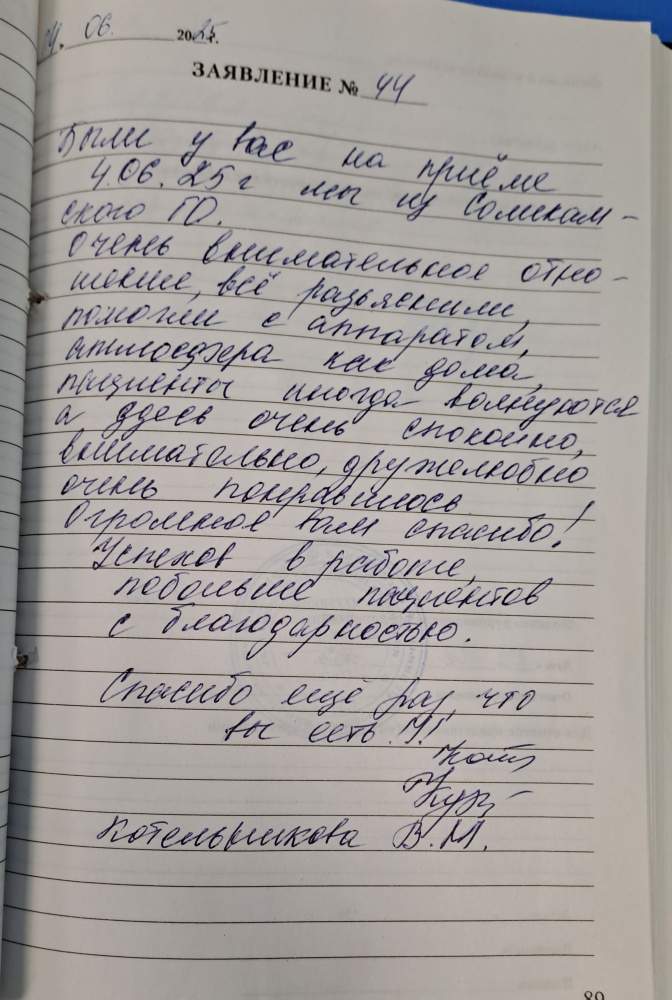 04. 06. 2025 г.
ЗАЯВЛЕНИЕ № 44
Были у вас на приёме
4.06.25 г мы из Соликам-
ского ГО.
Очень внимательное отно-
шение, всё разъяснили,
помогли с аппаратом,
атмосфера как дома,
пациенты иногда волнуются
а здесь очень спокойно,
внимательно, дружелюбно
очень понравилось
Огромное вам спасибо!
Успехов в работе,
побольше пациентов
с благодарностью.
Спасибо ещё раз, что
вы есть!!!
Котельникова В.М.
89